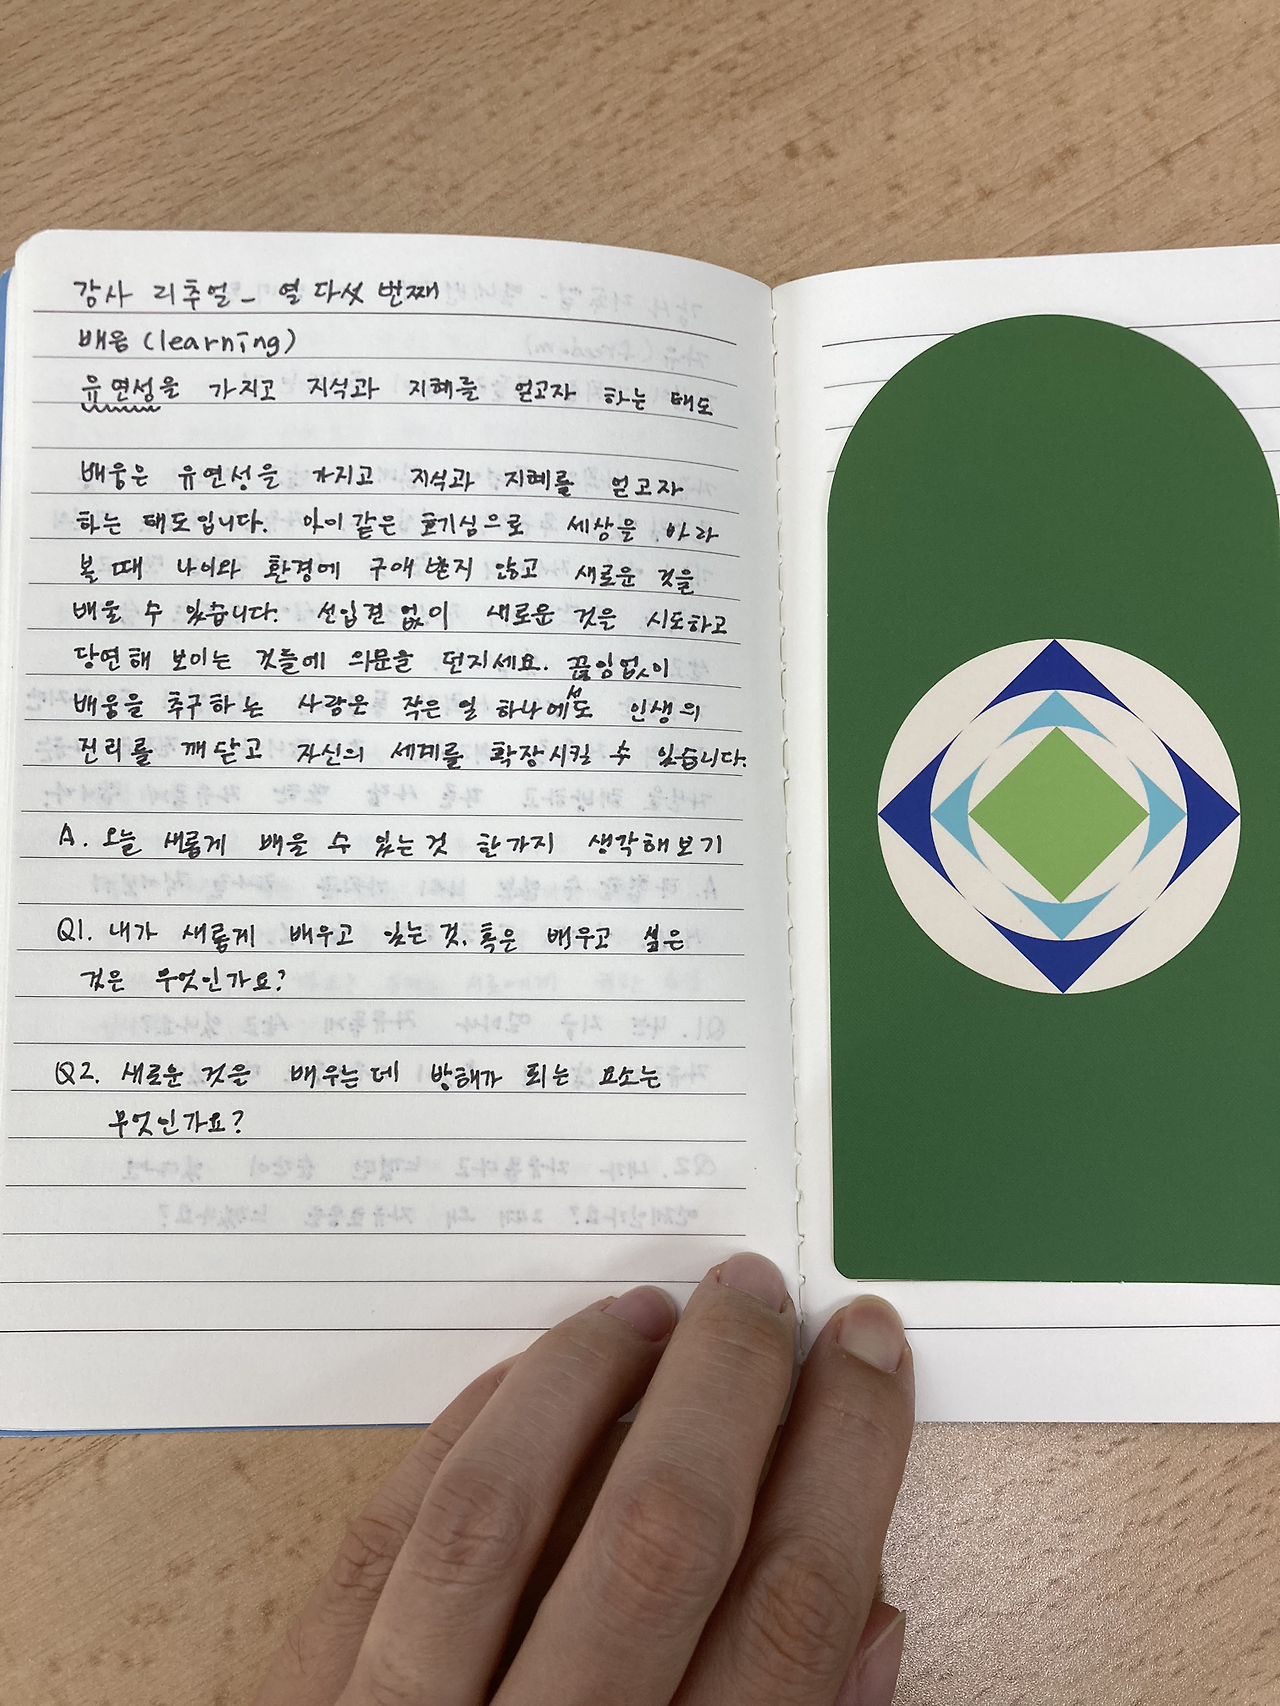 감사 리추얼_ 열 다섯 번째
배움 (learning)
유연성을 가지고 지식과 지혜를 얻고자 하는 태도
배움은 유연성을 가지고 지식과 지혜를 얻고자
하는 태도입니다. 아이같은 호기심으로 세상을 바라
볼 때 나이와 환경에 구애 받지 않고 새로운 것을
배울 수 있습니다. 선입견 없이 새로운 것을 시도하고
당연해 보이는 것들에 의문을 던지세요. 끊임없이
배움을 추구하는 사람은 작은 일 하나에서도 인생의
진리를 깨닫고 자신의 세계를 확장시킬 수 있습니다.
A. 오늘 새롭게 배울 수 있는 것 한가지 생각해보기
Q1. 내가 새롭게 배우고 있는 것, 혹은 배우고 싶은
것은 무엇인가요?
Q2. 새로운 것을 배우는데 방해가 되는 요소는
무엇인가요?